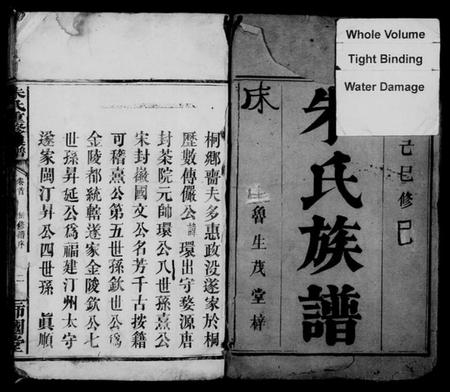 Whole Volume
Tight Binding
Water Damage
己巳修
朱氏族譜
魯生茂堂梓
桐鄉嗇夫多惠政没遂家於桐
歷數傳儼公諱環出守婺源唐
封茶院元帥環公八世孫熹公
宋封徽國文公名芳千古按籍
可稽熹公第五世孫欽世公爲
金陵都統轄遂家金陵欽公七
世孫昇延公爲福建汀州太守
遂家閩汀昇公四世孫 眞順
卷首